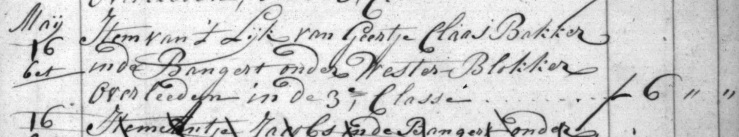 Maij
16 Item van't Lyk van Geertje Claas Bakker
bet in de Bangert onder Wester-Blokker
Overleeden in de 3e Classe ........ f 6 " "
16 Item Jacobs in de Bangert onder